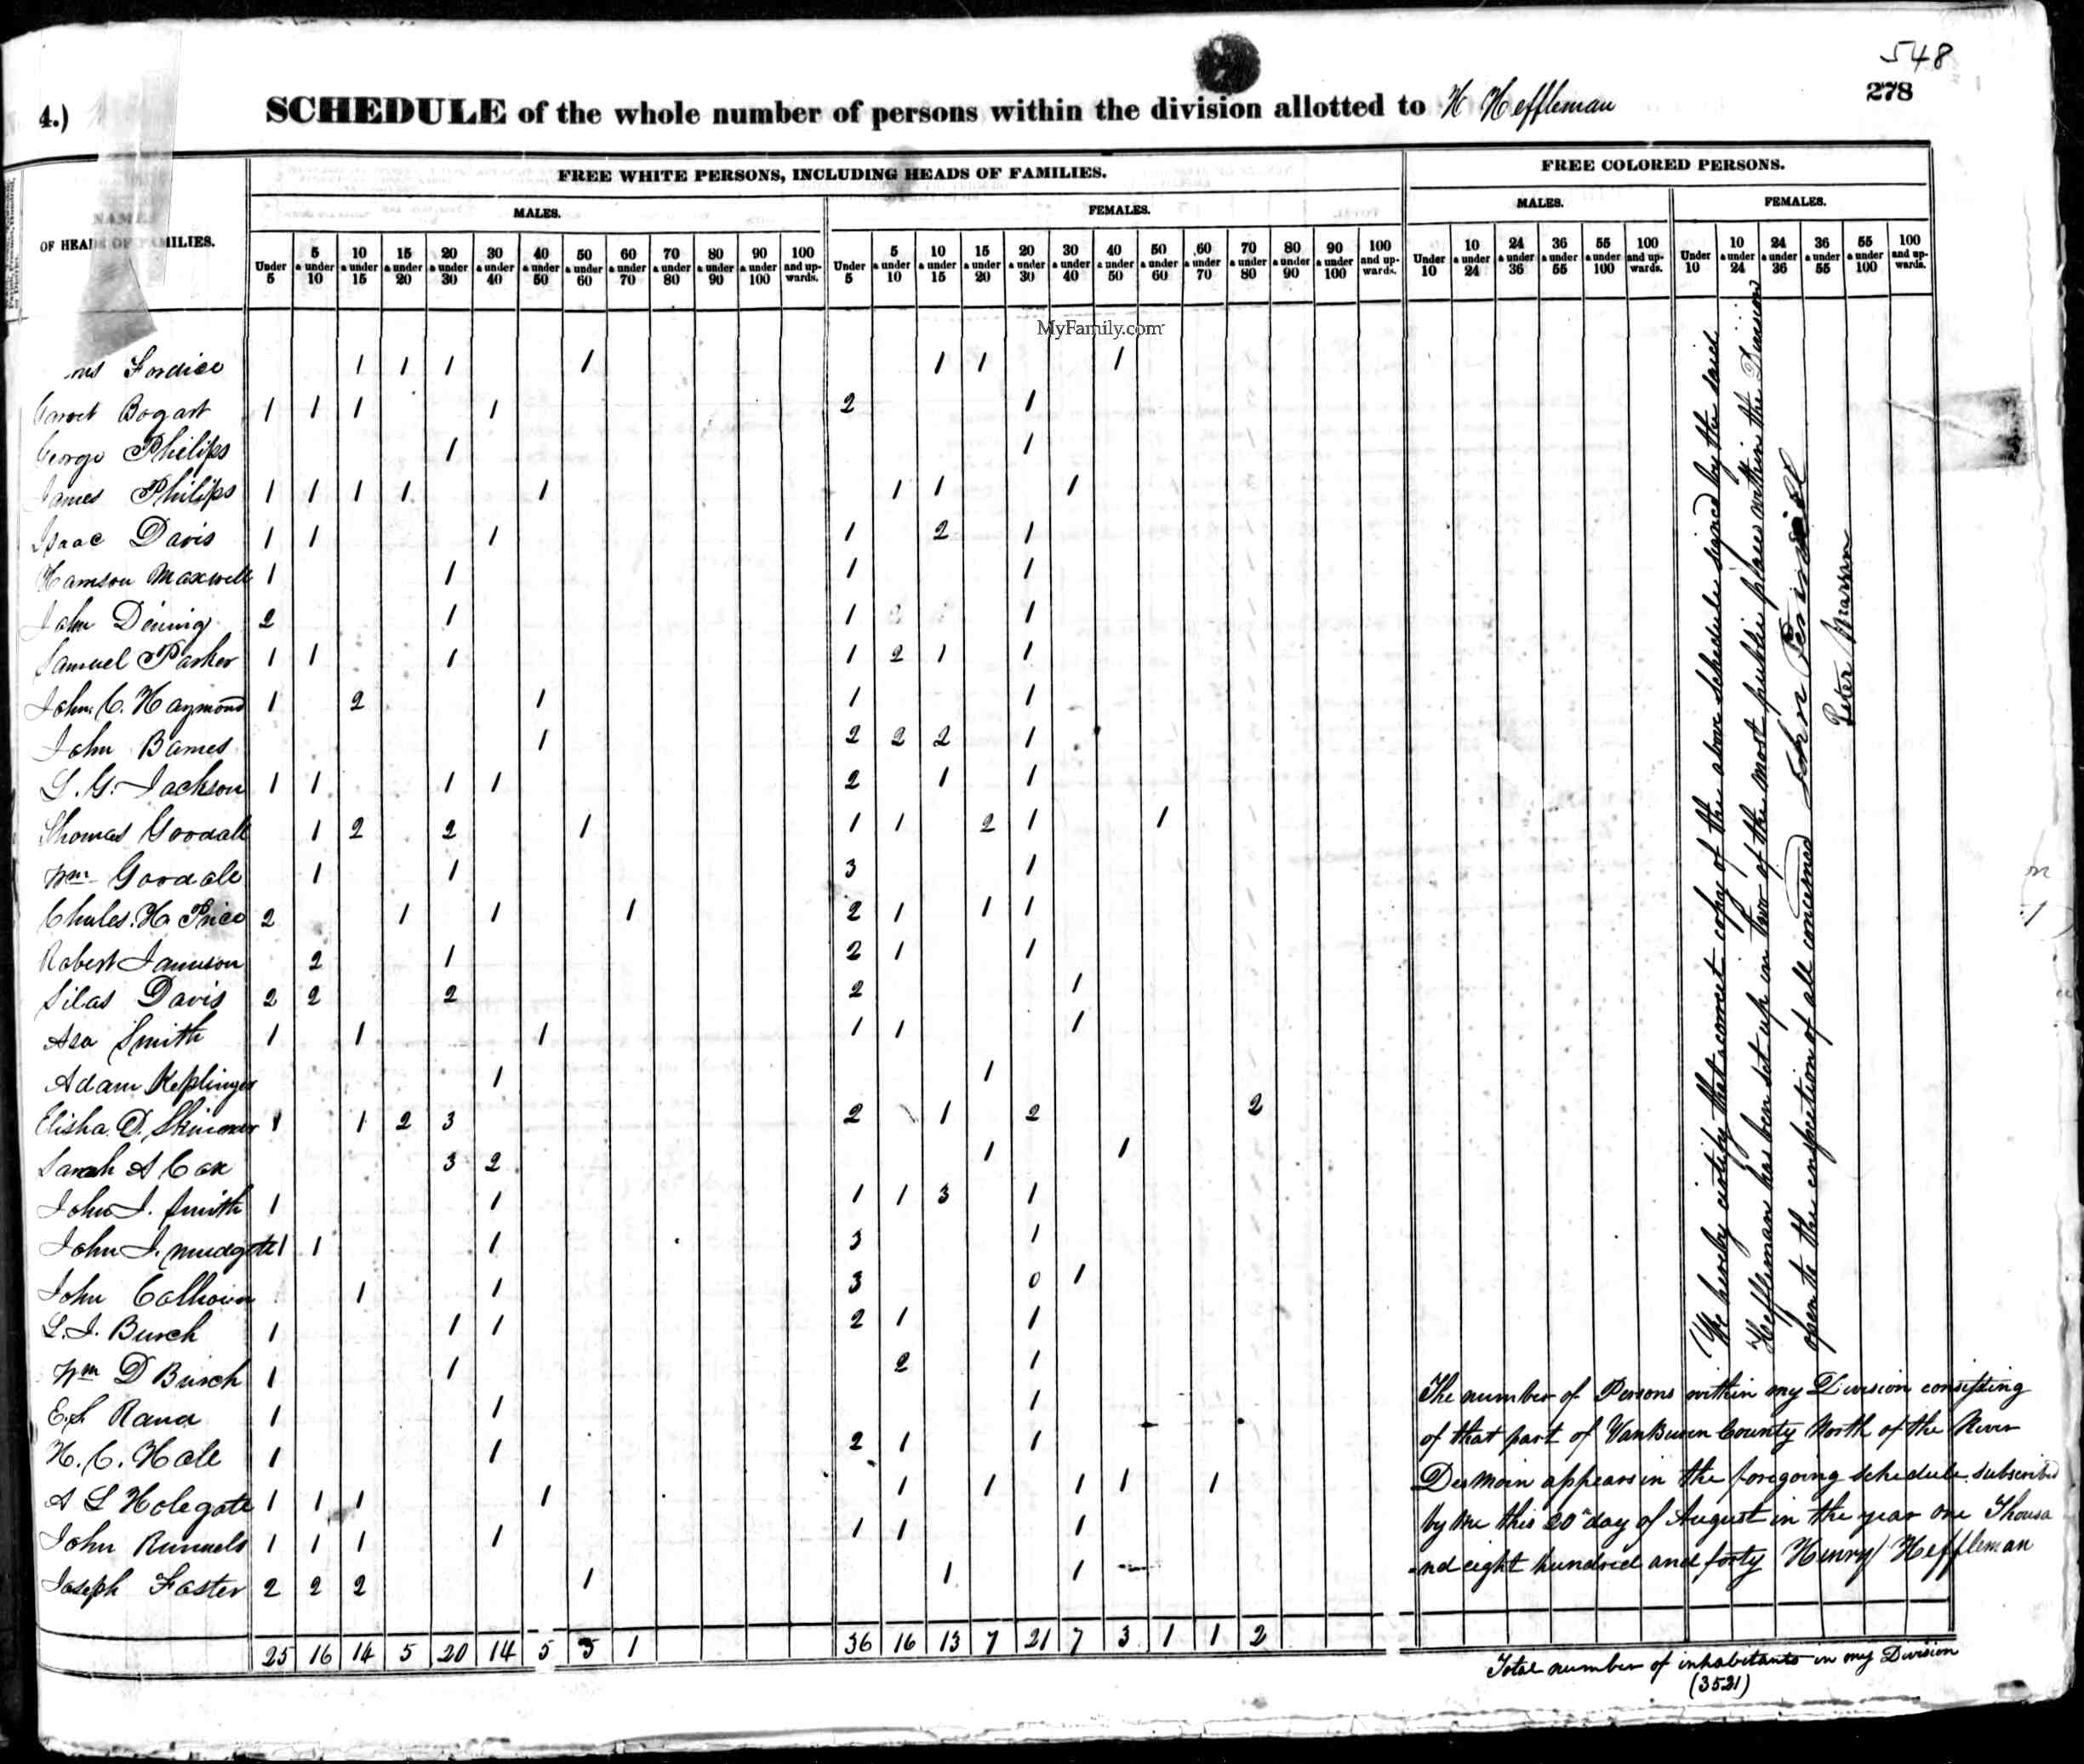 548
278
4.)
SCHEDULE of the whole number of persons within the division allotted to H Heffleman
NAMES
OF HEADS OF FAMILIES.
FREE WHITE PERSONS, INCLUDING HEADS OF FAMILIES.
FREE COLORED PERSONS.
MALES.
FEMALES.
MALES.
FEMALES.
Under 5
5 & under 10
10 & under 15
15 & under 20
20 & under 30
30 & under 40
40 & under 50
50 & under 60
60 & under 70
70 & under 80
80 & under 90
90 & under 100
100 and upwards.
Under 5
5 & under 10
10 & under 15
15 & under 20
20 & under 30
30 & under 40
40 & under 50
50 & under 60
60 & under 70
70 & under 80
80 & under 90
90 & under 100
100 and upwards.
Under 10
10 & under 24
24 & under 36
36 & under 55
55 & under 100
100 and upwards.
Under 10
10 & under 24
24 & under 36
36 & under 55
55 & under 100
100 and upwards.
MyFamily.com
Fordice 1 1 1 1 1 1 1
Garret Bogart 1 1 1 1 2 1
George Philips 1 1
James Philips 1 1 1 1 1 1 1 1
Isaac Davis 1 1 1 1 2 1
Harrison Maxwell 1 1 1 1
John Dening 2 1 1 1
Samuel Parker 1 1 1 1 2 1 1
John C. Haymond 1 2 1 1 1
John Barnes 1 2 2 2 1
L. G. Jackson 1 1 1 1 2 1 1
Thomas Goodall 1 2 2 1 1 1 2 1 1
Wm Goodale 1 1 3 1
Charles H. Price 2 1 1 1 2 1 1 1
Robert Jamison 2 1 2 1 1
Silas Davis 2 2 2 2 1
Asa Smith 1 1 1 1 1 1
Adam Keplinger 1 1
Elisha D. Skinner 1 1 2 3 2 1 2 2
Sarah A Cox 3 2 1 1
John J. Smith 1 1 1 1 3 1
John J. Mudgett 1 1 1 3 1
John Calhoun 1 1 3 0 1
L. J. Burch 1 1 1 2 1 1
Wm D Burch 1 1 2 1
E. S Rand 1 1 1
H. C. Hale 1 1 2 1 1
A L Holegate 1 1 1 1 1 1 1 1 1
John Runnels 1 1 1 1 1 1 1
Joseph Faster 2 2 2 1 1 1
25 16 14 5 20 14 5 5 1 36 16 13 7 21 7 3 1 1 2
We hereby certify that a correct copy of the above schedule signed by the said
Heffleman has been set up in two of the most public places within the Division
open to the inspection of all concerned John
Peter
The number of Persons within my Division consisting
of that part of VanBuren County North of the River
Desmoin appears in the foregoing schedule subscribed
by me this 20th day of August in the year one Thousa
nd eight hundred and forty Henry Heffleman
Total number of inhabitants in my Division
(3521)